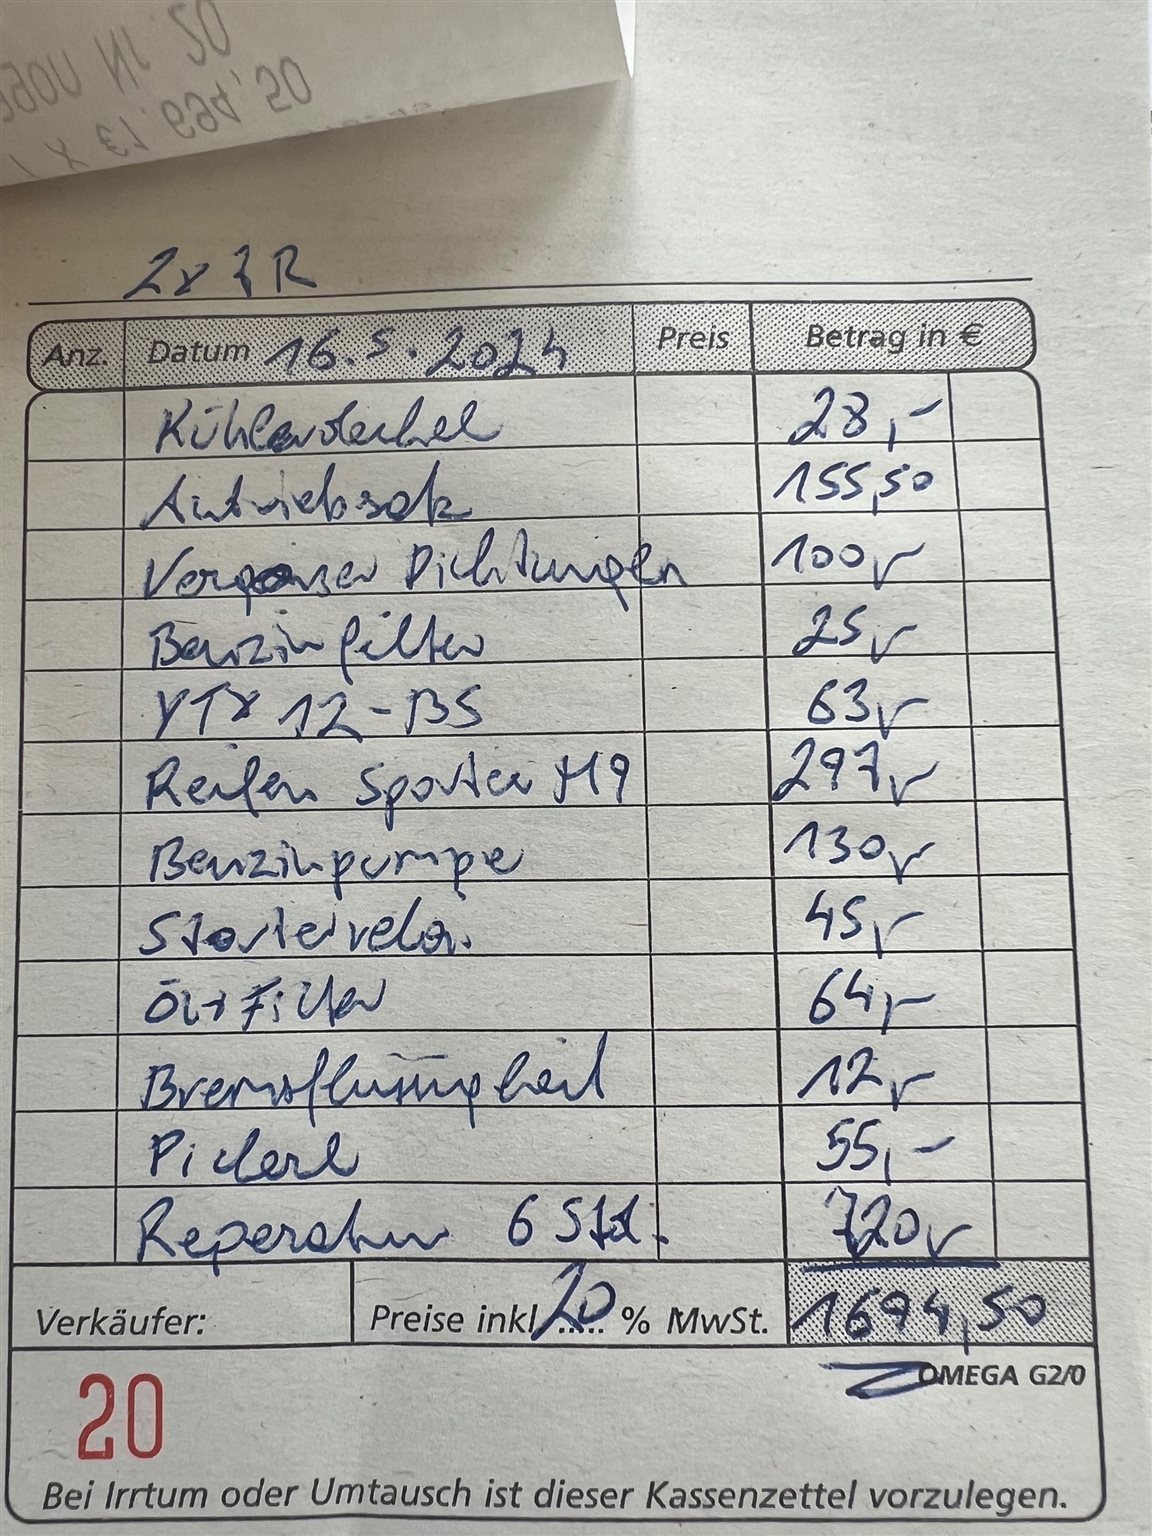 Nr 20
1 x €1.694,50
ZX7R
Anz. Datum 16.5.2024 Preis Betrag in €
Kühlerdeckel 28,-
Antriebsatz 155,50
Vergaser Dichtungen 100,-
Benzinfilter 25,-
YTX 12-BS 63,-
Reifen Sportec M9 297,-
Benzinpumpe 130,-
Starterrelai. 45,-
Öl+Filter 64,-
Bremsflüssigkeit 12,-
Pickerl 55,-
Reperatur 6 Std. 720,-
Verkäufer: Preise inkl. 20 % MwSt. 1694,50
OMEGA G2/0
20
Bei Irrtum oder Umtausch ist dieser Kassenzettel vorzulegen.